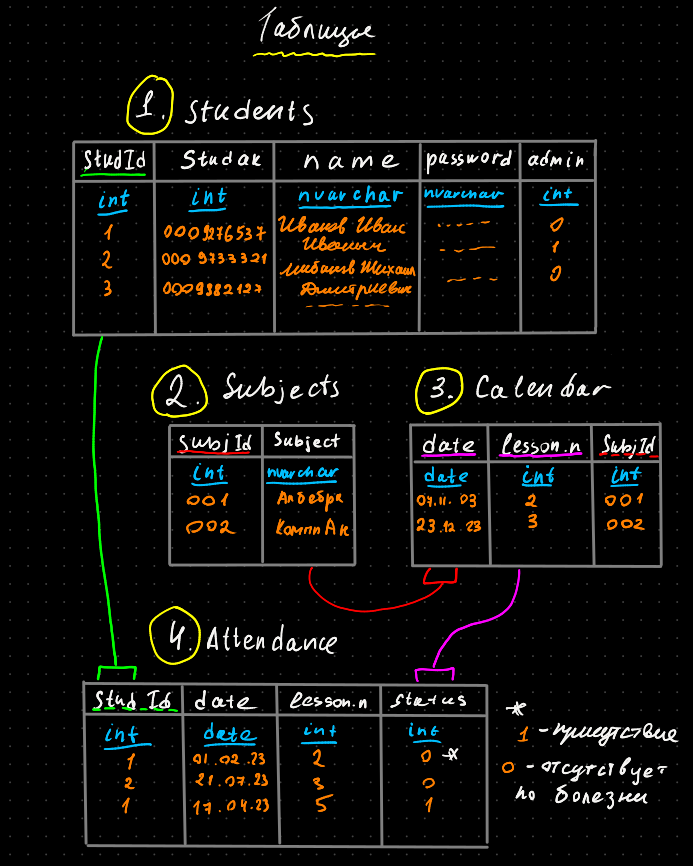 Таблицы
1. Students
StudId Studak name password admin
int int nvarchar nvarchar int
1 0009276537 Иванов Иван 0
Иванич ----- 1
2 0009733321
Михаил ---- 0
3 0009382127 Дмитриевич
- - - - -
2. Subjects
SubjId Subject
int nvarchar
001 Алгебра
002 КомплАк
3. Calendar
date lesson.n SubjId
date int int
07.11.03 2 001
23.12.23 3 002
4. Attendance
Stud Id date lesson.n status
int date int int
1 01.02.23 2 0 *
2 21.07.23 3 0
1 17.04.23 5 1
*
1 - присутствие
0 - отсутствует
по болезни